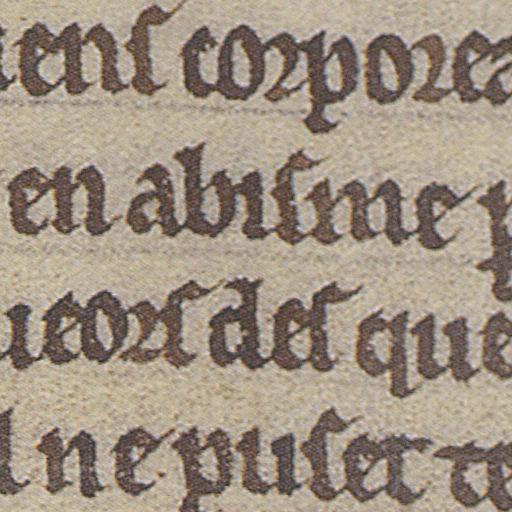 iens corporea
en abisme p
ueors des que
l ne puset te